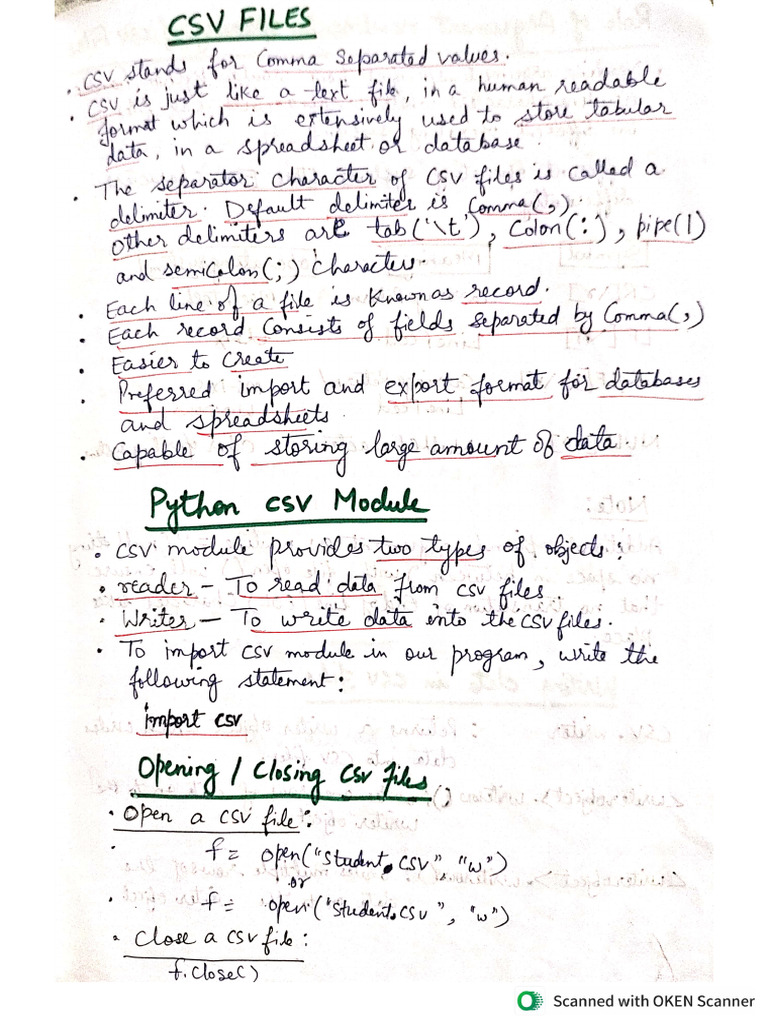 CSV FILES
• CSV stands for Comma Separated values.
• CSV is just like a text file, in a human readable
format which is extensively used to store tabular
data, in a spreadsheet or database.
• The separator character of CSV files is called a
delimiter. Default delimiter is Comma(,)
other delimiters are tab('\t'), Colon(:), pipe(|)
and semicolon(;) characters
• Each line of a file is known as record.
• Each record Consists of fields separated by Comma(,)
• Easier to Create
• Preferred import and export format for databases
and spreadsheets.
• Capable of storing large amount of data.
Python CSV Module
• CSV module provides two types of objects:
• reader – To read data from CSV files
• Writer – To write data into the CSV files.
• To import CSV module in our program, write the
following statement:
import csv
Opening / Closing CSV files
• Open a CSV file:
• f = open("Student.CSV" "w")
or
• f = open("Student.CSV", "w")
• Close a CSV file:
f.Close()
Scanned with OKEN Scanner